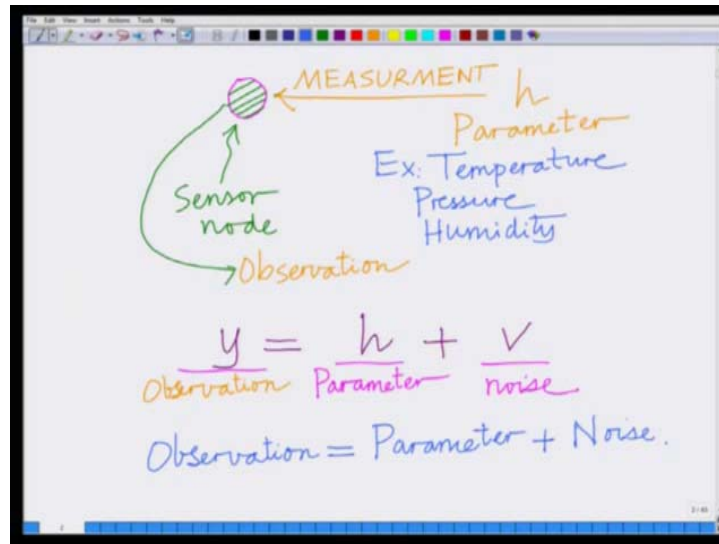 File Edit View Insert Actions Tools Help
MEASURMENT h
Parameter
Ex: Temperature
Pressure
Humidity
Sensor
node
Observation
y = h + v
Observation Parameter noise
Observation = Parameter + Noise.